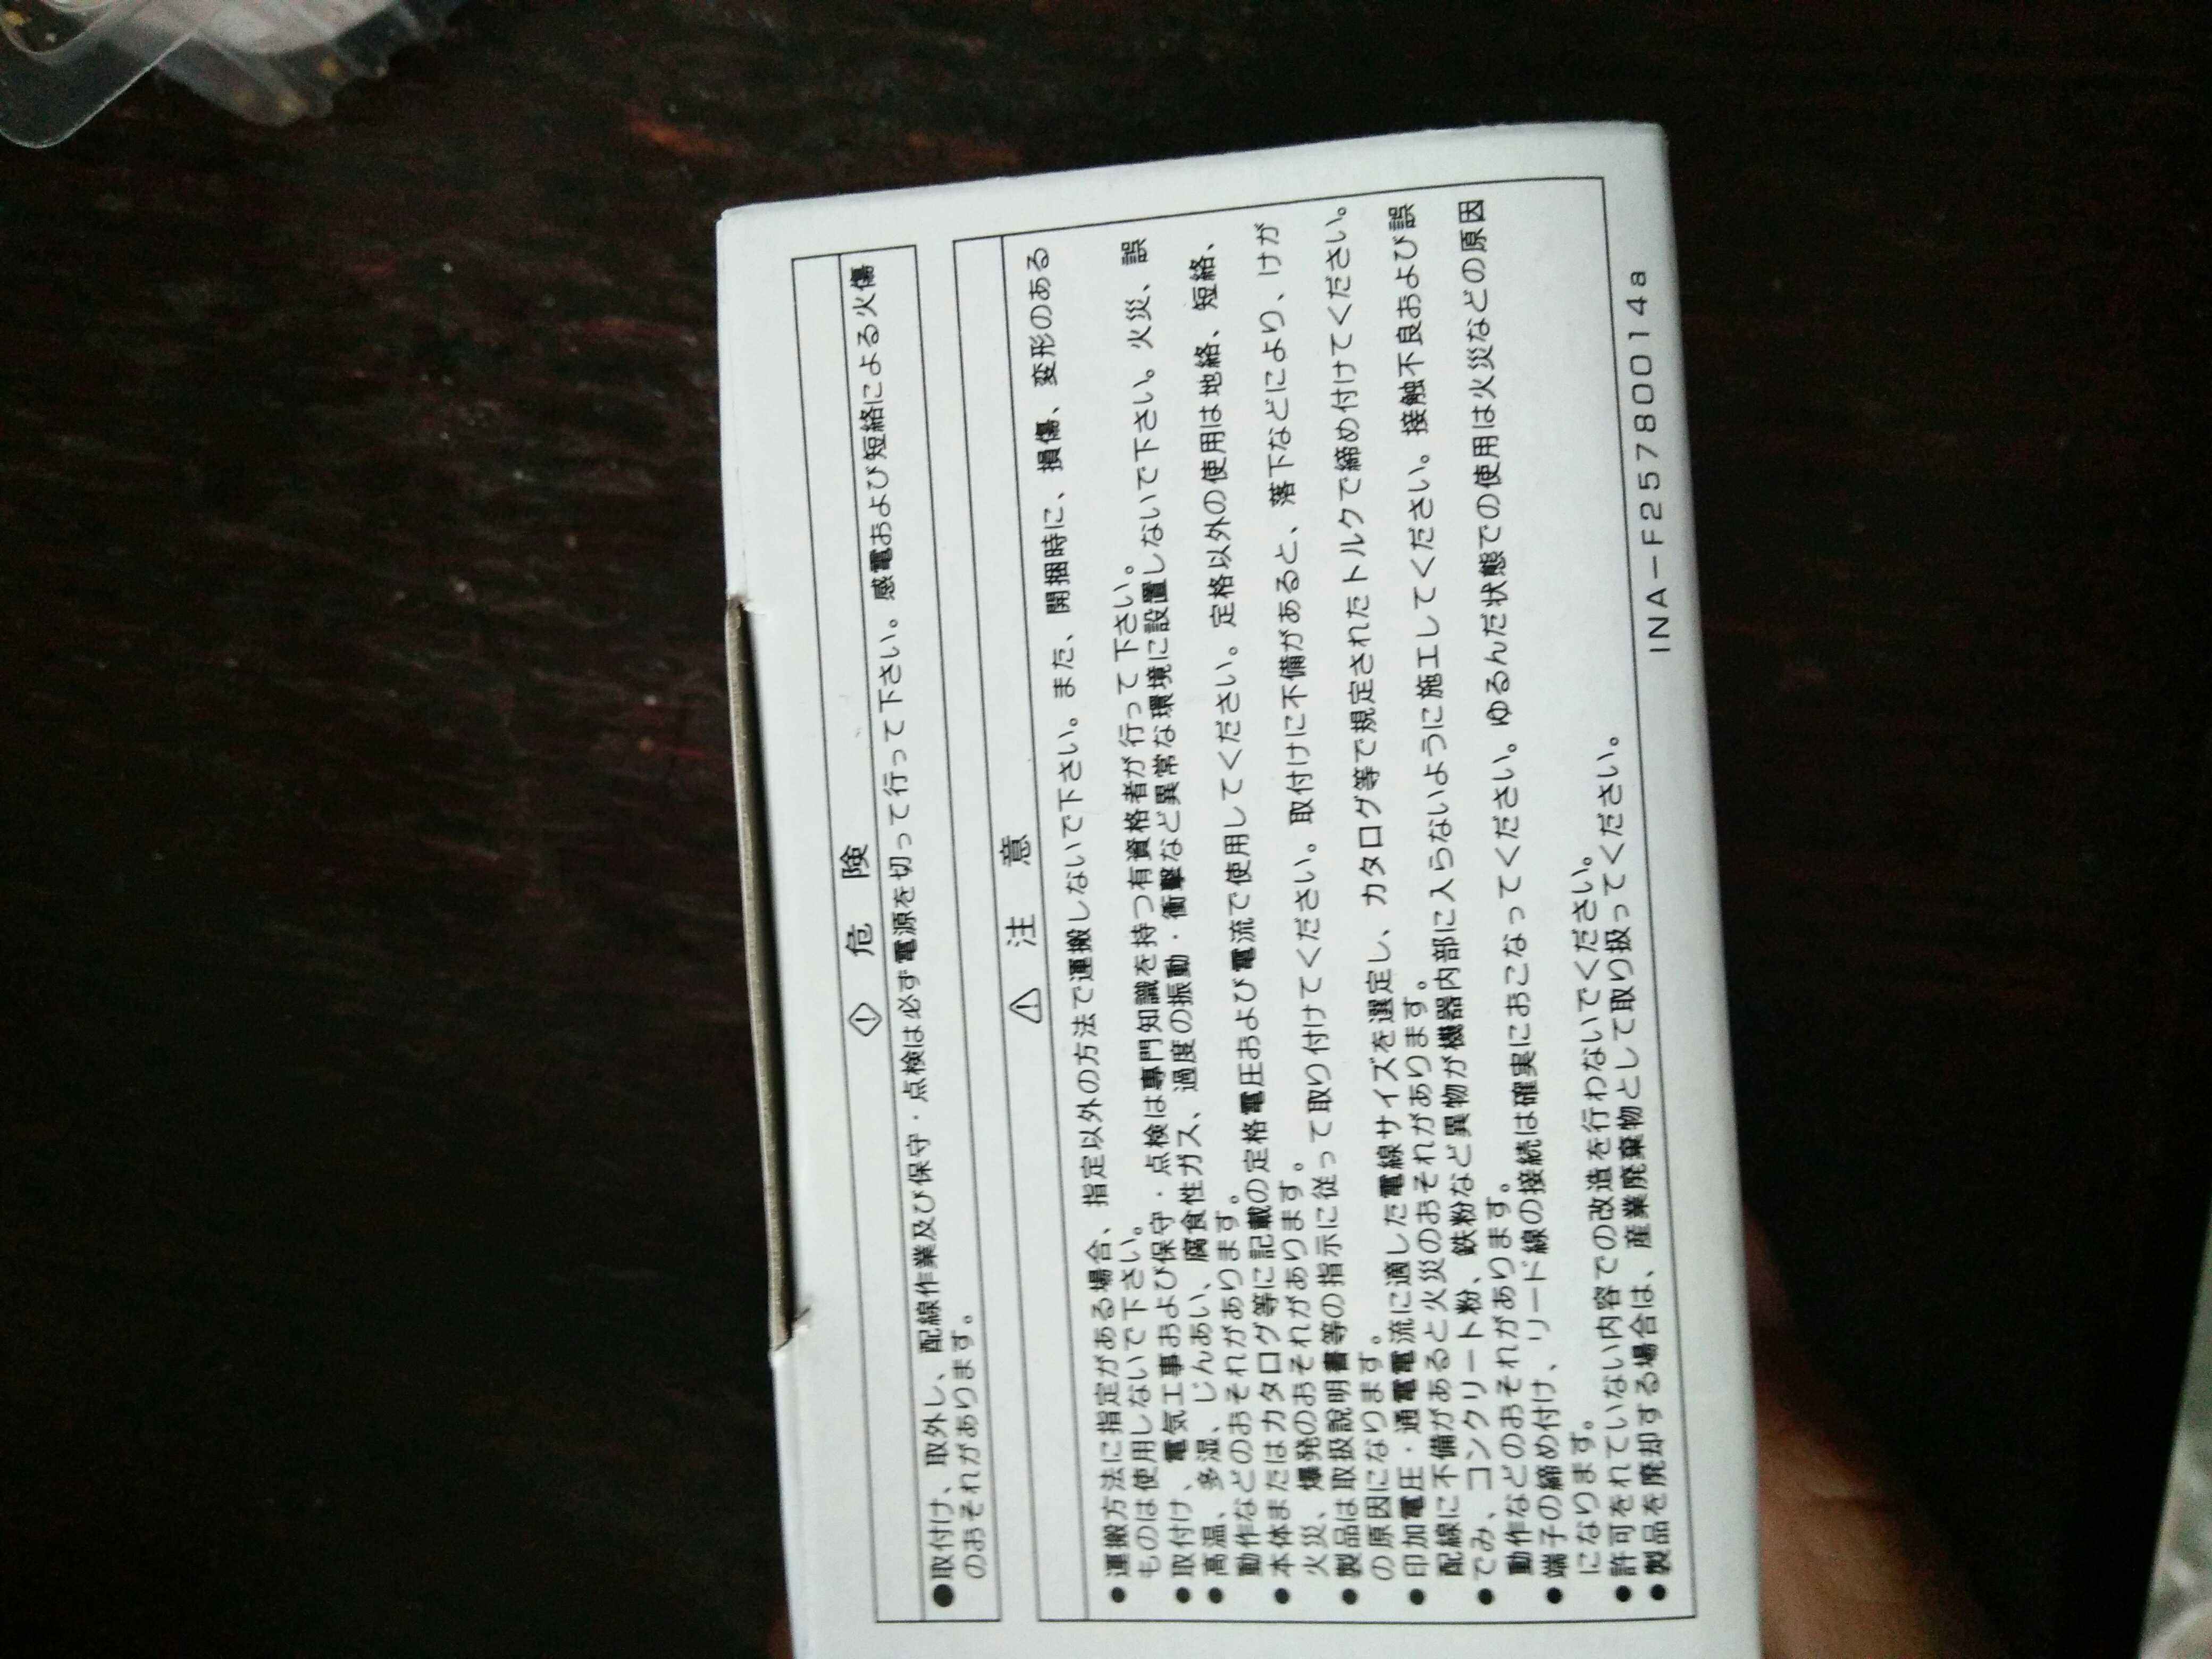 危 険
●取付け、取外し、配線作業及び保守・点検は必ず電源を切って行って下さい。感電および短絡による火傷
のおそれがあります。
注 意
●運搬方法に指定がある場合、指定以外の方法で運搬しないで下さい。また、開捆時に、損傷、変形のある
ものは使用しないで下さい。
●取付け、電気工事および保守・点検は専門知識を持つ有資格者が行って下さい。
●高温、多湿、じんあい、腐食性ガス、過度の振動・衝撃など異常な環境に設置しないで下さい。火災、誤
動作などのおそれがあります。
●本体またはカタログ等に記載の定格電圧および電流で使用してください。定格以外の使用は地絡、短絡、
火災、爆発のおそれがあります。
●製品は取扱説明書等の指示に従って取り付けてください。取付けに不備があると、落下などにより、けが
の原因になります。
●印加電圧・通電電流に適した電線サイズを選定し、カタログ等で規定されたトルクで締め付けてください。
配線に不備があると火災のおそれがあります。
●でみ、コンクリート粉、鉄粉など異物が機器内部に入らないように施工してください。接触不良および誤
動作などのおそれがあります。
●端子の締め付け、リード線の接続は確実におこなってください。ゆるんだ状態での使用は火災などの原因
になります。
●許可をれていない内容での改造を行わないでください。
●製品を廃却する場合は、産業廃棄物として取り扱ってください。
INA－F25780014a